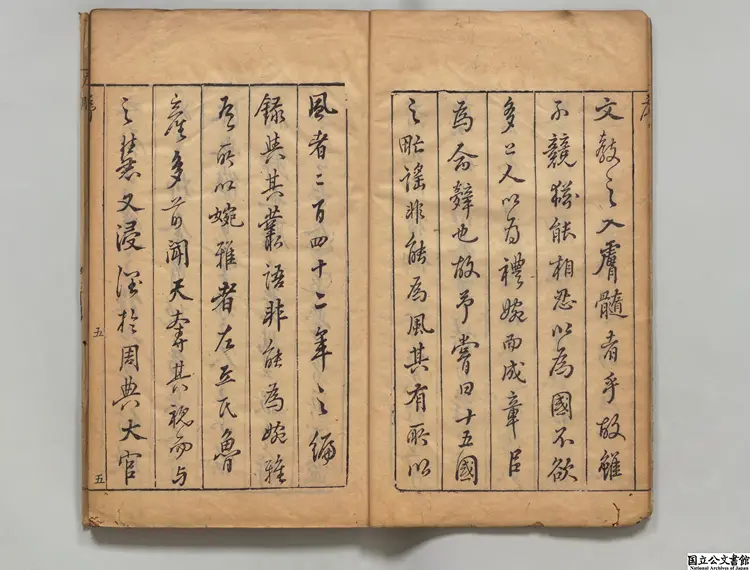 序
文敎之入膚髓者乎故雖
不競猶能相忍以為國不欲
多上人以為禮婉而成章臣
為命辭也故予嘗曰十五國
之甿謠非能為風其有所以
風者二百四十二年之編
錄與其叢語非能為婉雅
有所以婉雅者左丘氏魯
產多前聞天奪其視而与
之慧又浸淫於周典大官
序
五
五
国立公文書館
National Archives of Japan